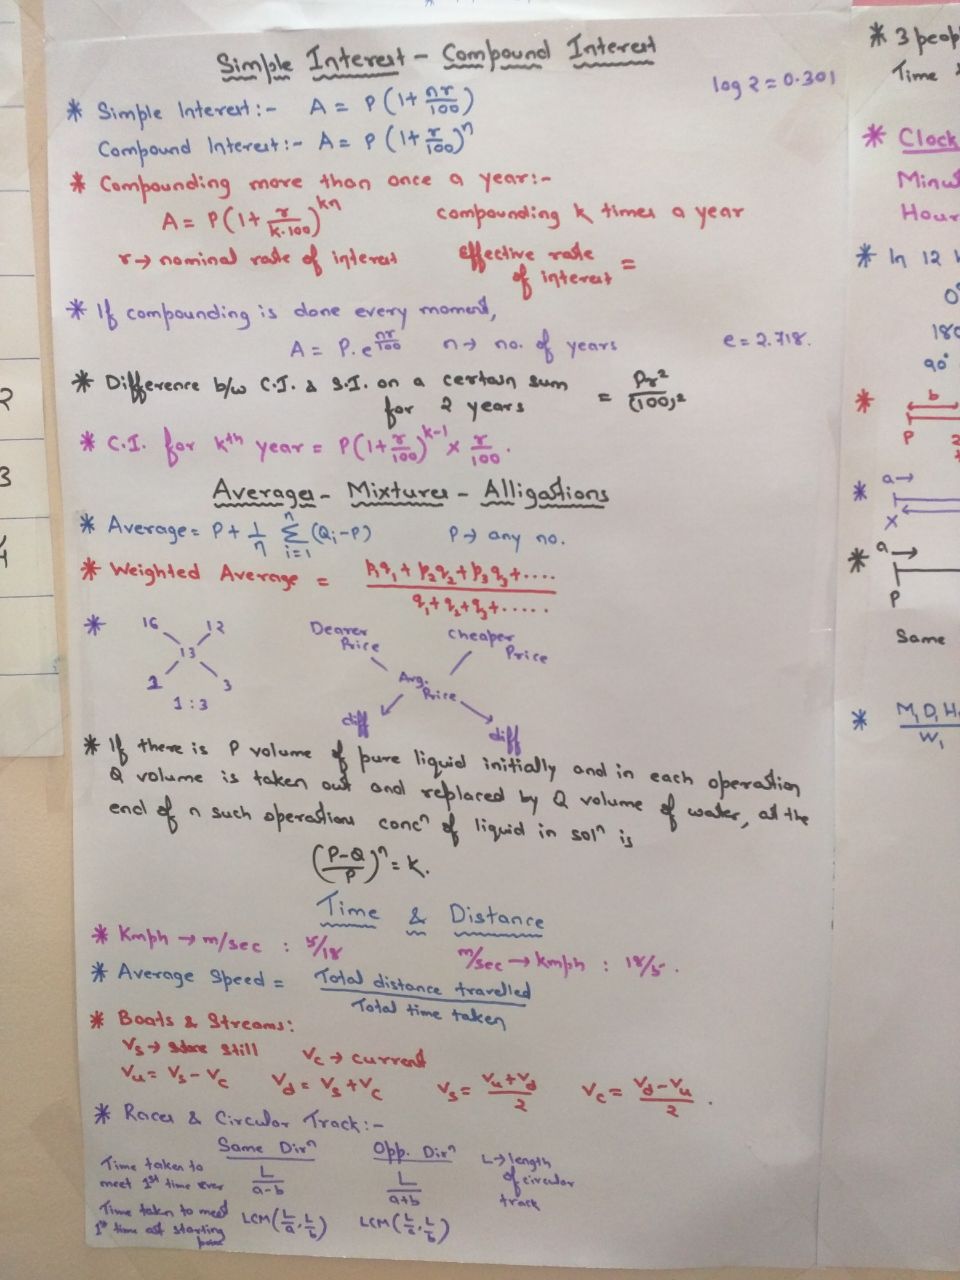 Simple Interest - Compound Interest
log 2 = 0.301
* Simple Interest:- A = P(1+nr/100)
Compound Interest:- A = P(1+r/100)^n
* Compounding more than once a year:-
A = P(1+r/k.100)^kn compounding k times a year
r→ nominal rate of interest effective rate of interest =
* If compounding is done every moment,
A = P.e^nr/100 n→ no. of years e = 2.718.
* Difference b/w C.I. & S.I. on a certain sum for 2 years = Pr²/(100)²
* C.I. for kth year = P(1+r/100)^k-1 × r/100.
Averages - Mixtures - Alligations
* Average = P + 1/n Σ i=1 n (Qi-P) P→ any no.
* Weighted Average = p1q1+p2q2+p3q3+..../q1+q2+q3+.....
* 16 12 Dearer Price Cheaper Price
13 Avg. Price
1 3 diff diff
1:3
* If there is P volume of pure liquid initially and in each operation
Q volume is taken out and replaced by Q volume of water, at the
end of n such operations concⁿ of liquid in solⁿ is
(P-Q/P)^n = k.
Time & Distance
* Kmph → m/sec : 5/18 m/sec → kmph : 18/5.
* Average Speed = Total distance travelled/Total time taken
* Boats & Streams:
Vs→ still Vc→ current
Vu = Vs - Vc Vd = Vs + Vc Vs = Vu+Vd/2 Vc = Vd-Vu/2.
* Races & Circular Track:-
Same Dirⁿ Opp. Dirⁿ L→ length of circular track
Time taken to meet 1st time ever L/a-b L/a+b
Time taken to meet 1st time at starting point LCM(L/a, L/b) LCM(L/a, L/b)
* 3 peop
Time
* Clock
Minu
Hour
* In 12 h
0°
180
90°
* b
P 2
* a→
X
* a→
P
Same
* M1D1H
W1
2
3
4